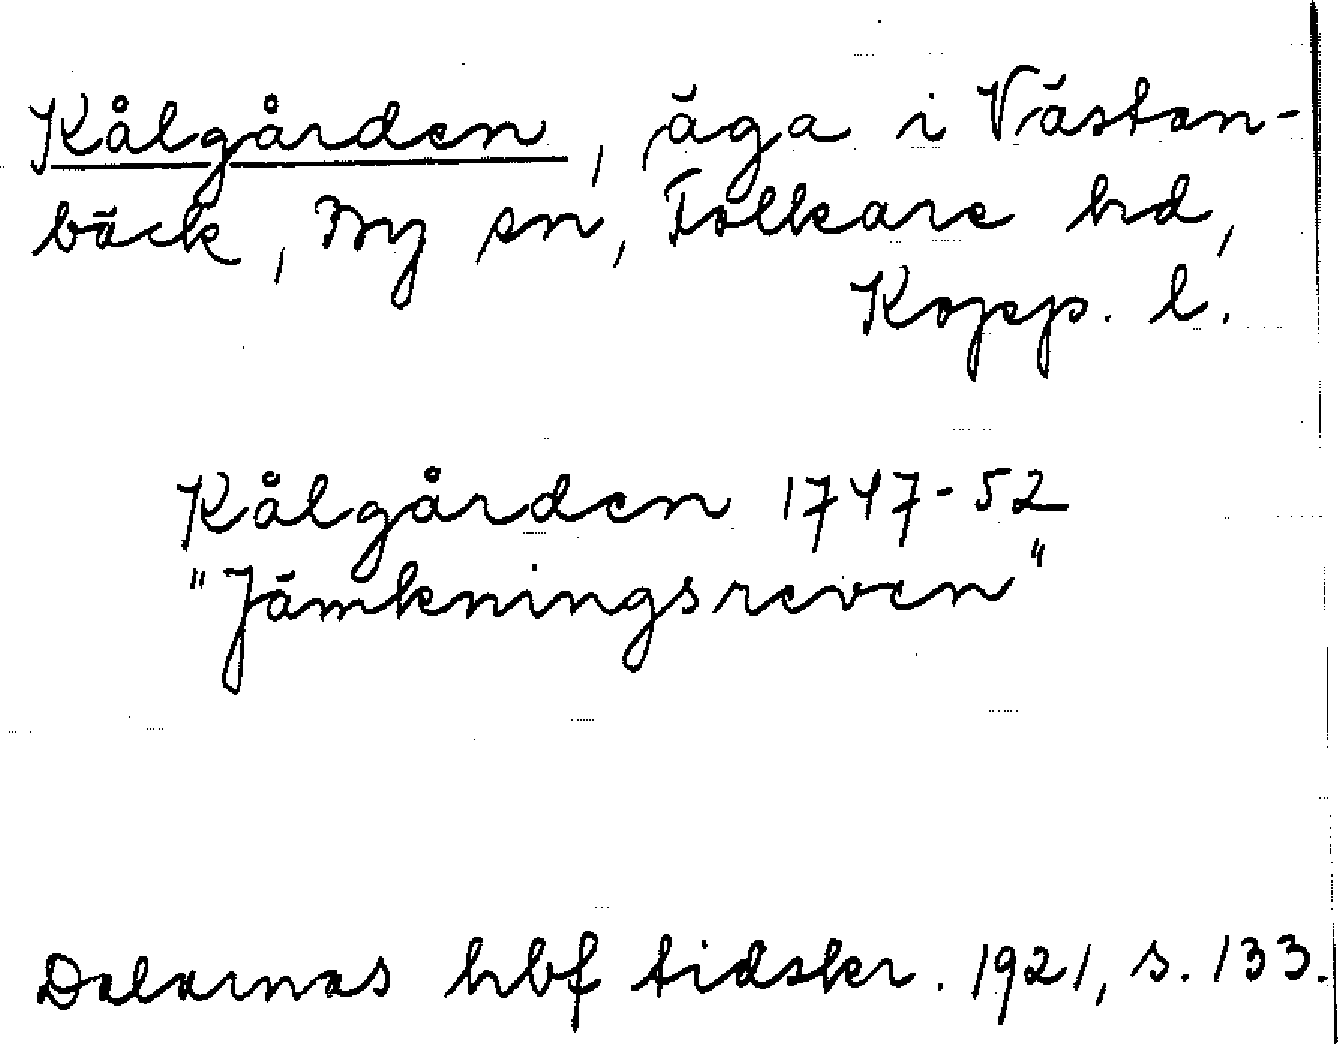 Kålgården, äga i Västan-
bäck, By sn, Folkare hd,
Kopp. l.
Kålgården 1747-52
"Jämkningsreven"
Dalarnas hbf tidskr. 1921, s. 133.